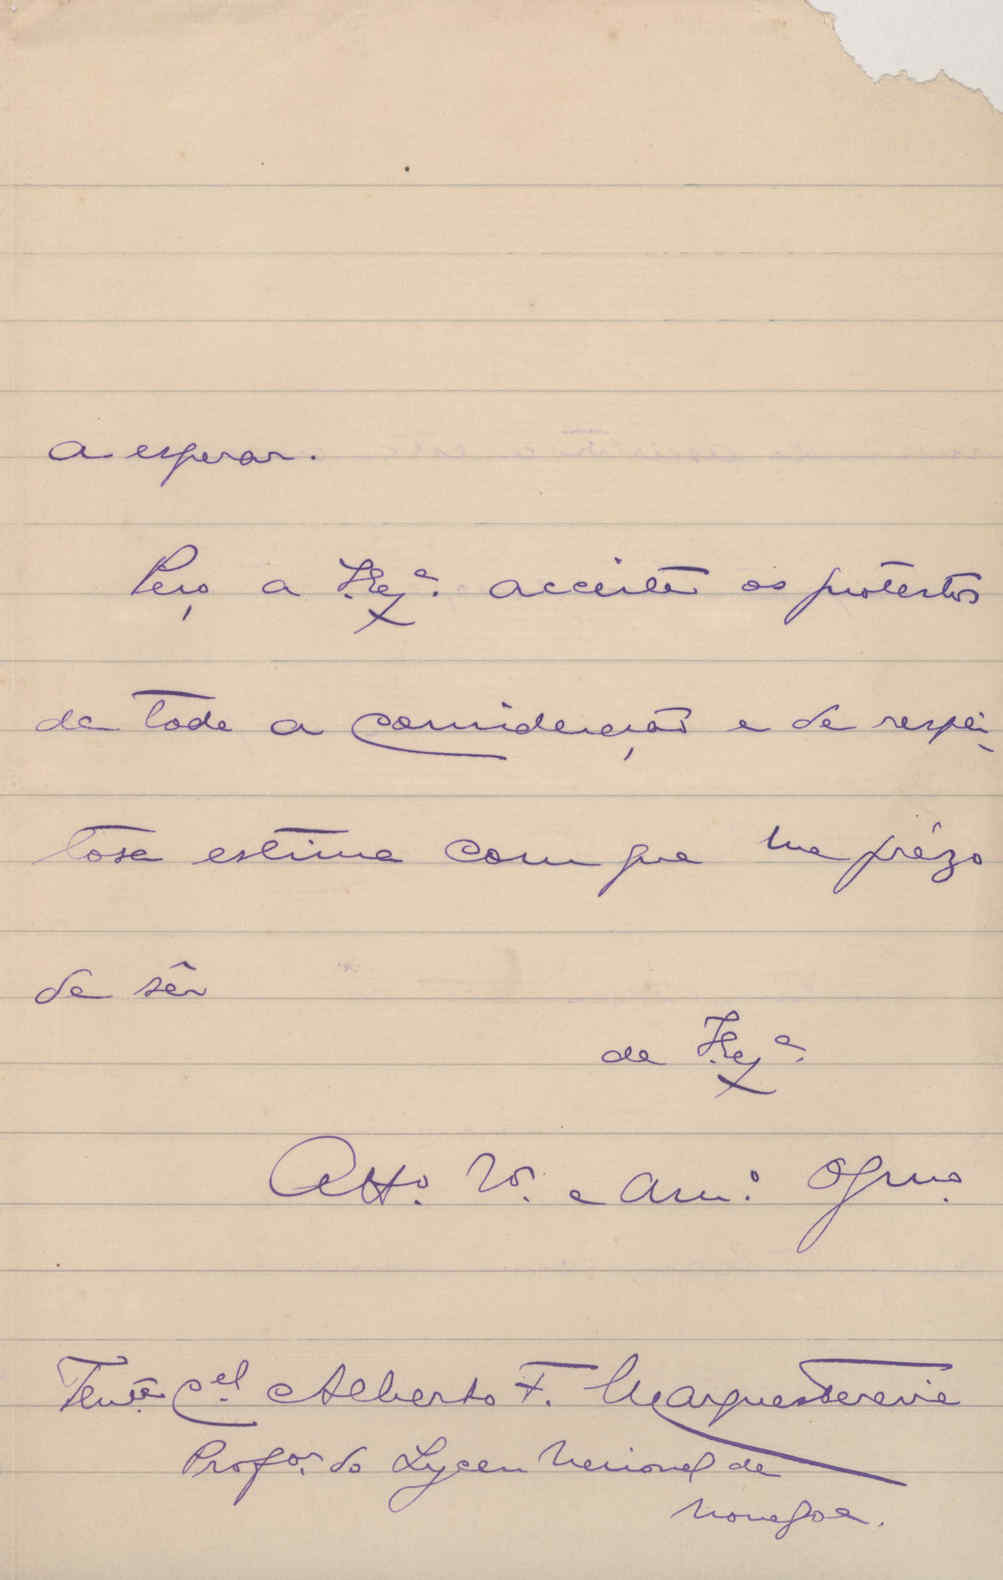 a esperar.
Peço a V. Exª. acceite os protestos
de toda a consideração e de respei-
tosa estima com que me prézo
de sêr
de V. Exª.
Attº. Vº. e Amº. Obgmº.
Tente. Cel. Alberto F. Marques Pereira
Profºr. do Lyceu Nacional de
Nova Goa.